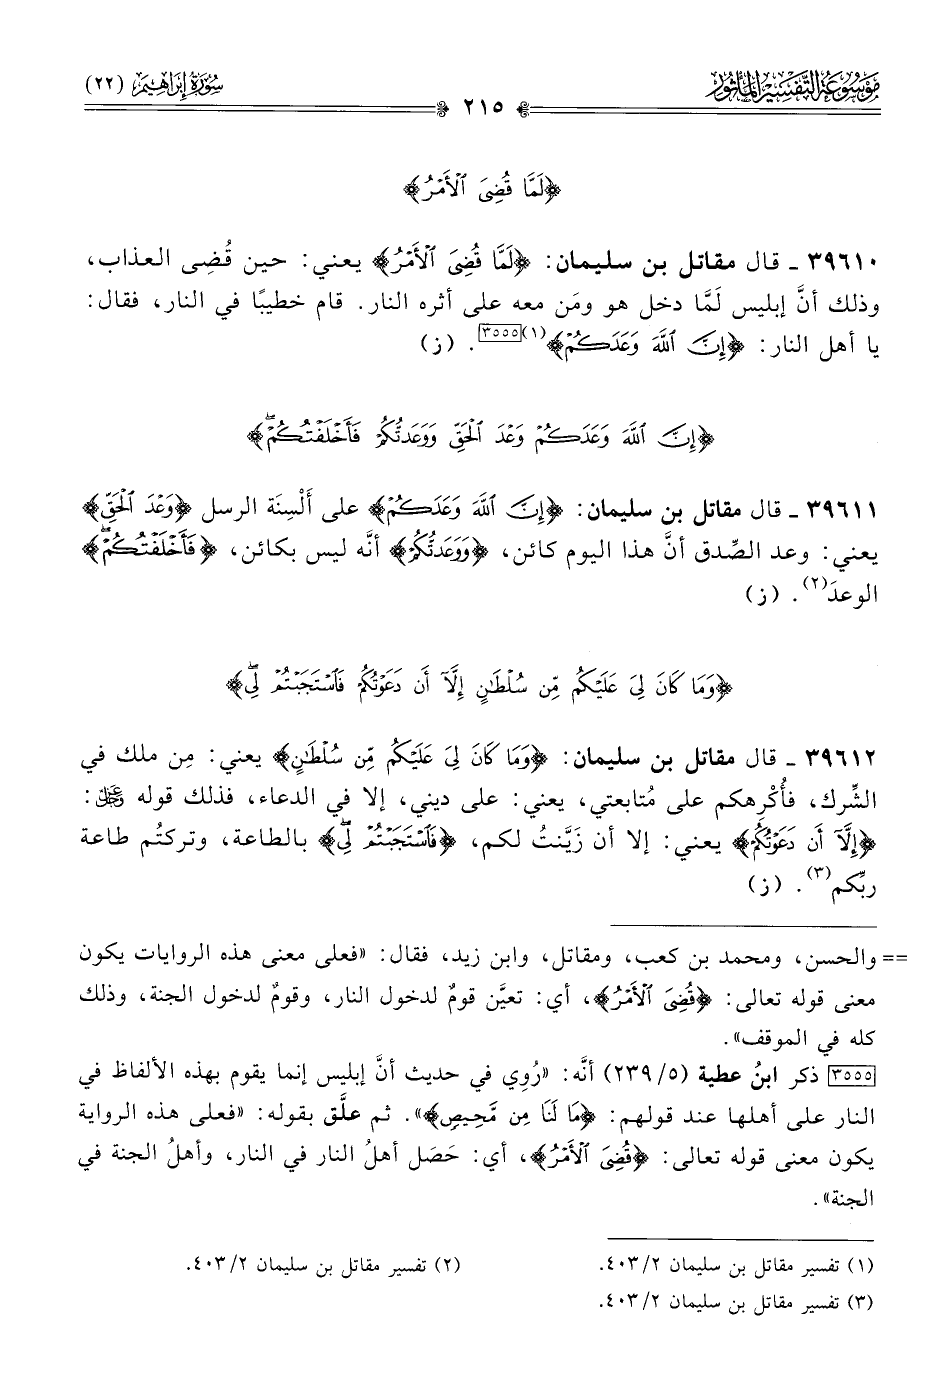 مَوْسُوعَةُ التَّفْسِيرِ المَأْثُورِ
سُورَةُ إِبْرَاهِيمَ (٢٢)
٢١٥
﴿لَمَّا قُضِىَ ٱلْأَمْرُ﴾
٣٩٦١٠ ـ قال مقاتل بن سليمان: ﴿لَمَّا قُضِىَ ٱلْأَمْرُ﴾ يعني: حين قُضِى العذاب،
وذلك أنَّ إبليس لَمَّا دخل هو ومَن معه على أثره النار. قام خطيبًا في النار، فقال:
يا أهل النار: ﴿إِنَّ ٱللَّهَ وَعَدَكُمْ﴾(١)[٣٥٥٥]. (ز)
﴿إِنَّ ٱللَّهَ وَعَدَكُمْ وَعْدَ ٱلْحَقِّ وَوَعَدتُّكُمْ فَأَخْلَفْتُكُمْۖ﴾
٣٩٦١١ ـ قال مقاتل بن سليمان: ﴿إِنَّ ٱللَّهَ وَعَدَكُمْ﴾ على ألْسِنَة الرسل ﴿وَعْدَ ٱلْحَقِّ﴾
يعني: وعد الصِّدق أنَّ هذا اليوم كائن، ﴿وَوَعَدتُّكُمْ﴾ أنَّه ليس بكائن، ﴿فَأَخْلَفْتُكُمْۖ﴾
الوعدَ(٢). (ز)
﴿وَمَا كَانَ لِىَ عَلَيْكُم مِّن سُلْطَٰنٍ إِلَّآ أَن دَعَوْتُكُمْ فَٱسْتَجَبْتُمْ لِىۖ﴾
٣٩٦١٢ ـ قال مقاتل بن سليمان: ﴿وَمَا كَانَ لِىَ عَلَيْكُم مِّن سُلْطَٰنٍ﴾ يعني: مِن ملك في
الشِّرك، فأُكْرِهكم على مُتابعتي، يعني: على ديني، إلا في الدعاء، فذلك قوله ﷿:
﴿إِلَّآ أَن دَعَوْتُكُمْ﴾ يعني: إلا أن زَيَّنتُ لكم، ﴿فَٱسْتَجَبْتُمْ لِىۖ﴾ بالطاعة، وتركتُم طاعة
ربِّكم(٣). (ز)
== والحسن، ومحمد بن كعب، ومقاتل، وابن زيد، فقال: «فعلى معنى هذه الروايات يكون
معنى قوله تعالى: ﴿قُضِىَ ٱلْأَمْرُ﴾، أي: تعيَّن قومٌ لدخول النار، وقومٌ لدخول الجنة، وذلك
كله في الموقف».
[٣٥٥٥] ذكر ابنُ عطية (٢٣٩/٥) أنَّه: «رُوِي في حديث أنَّ إبليس إنما يقوم بهذه الألفاظ في
النار على أهلها عند قولهم: ﴿مَا لَنَا مِن مَّحِيصٍ﴾». ثم علَّق بقوله: «فعلى هذه الرواية
يكون معنى قوله تعالى: ﴿قُضِىَ ٱلْأَمْرُ﴾، أي: حَصَل أهلُ النار في النار، وأهلُ الجنة في
الجنة».
(١) تفسير مقاتل بن سليمان ٤٠٣/٢.
(٢) تفسير مقاتل بن سليمان ٤٠٣/٢.
(٣) تفسير مقاتل بن سليمان ٤٠٣/٢.